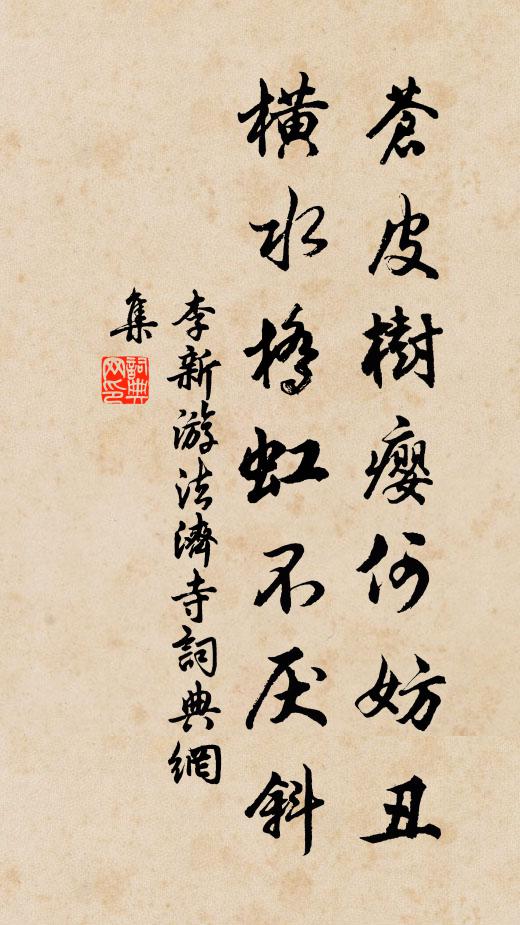 蒼皮樹癭何妨丑
橫水橋虹不厌斜
李新游法濟寺詞典網
集
詞典网印